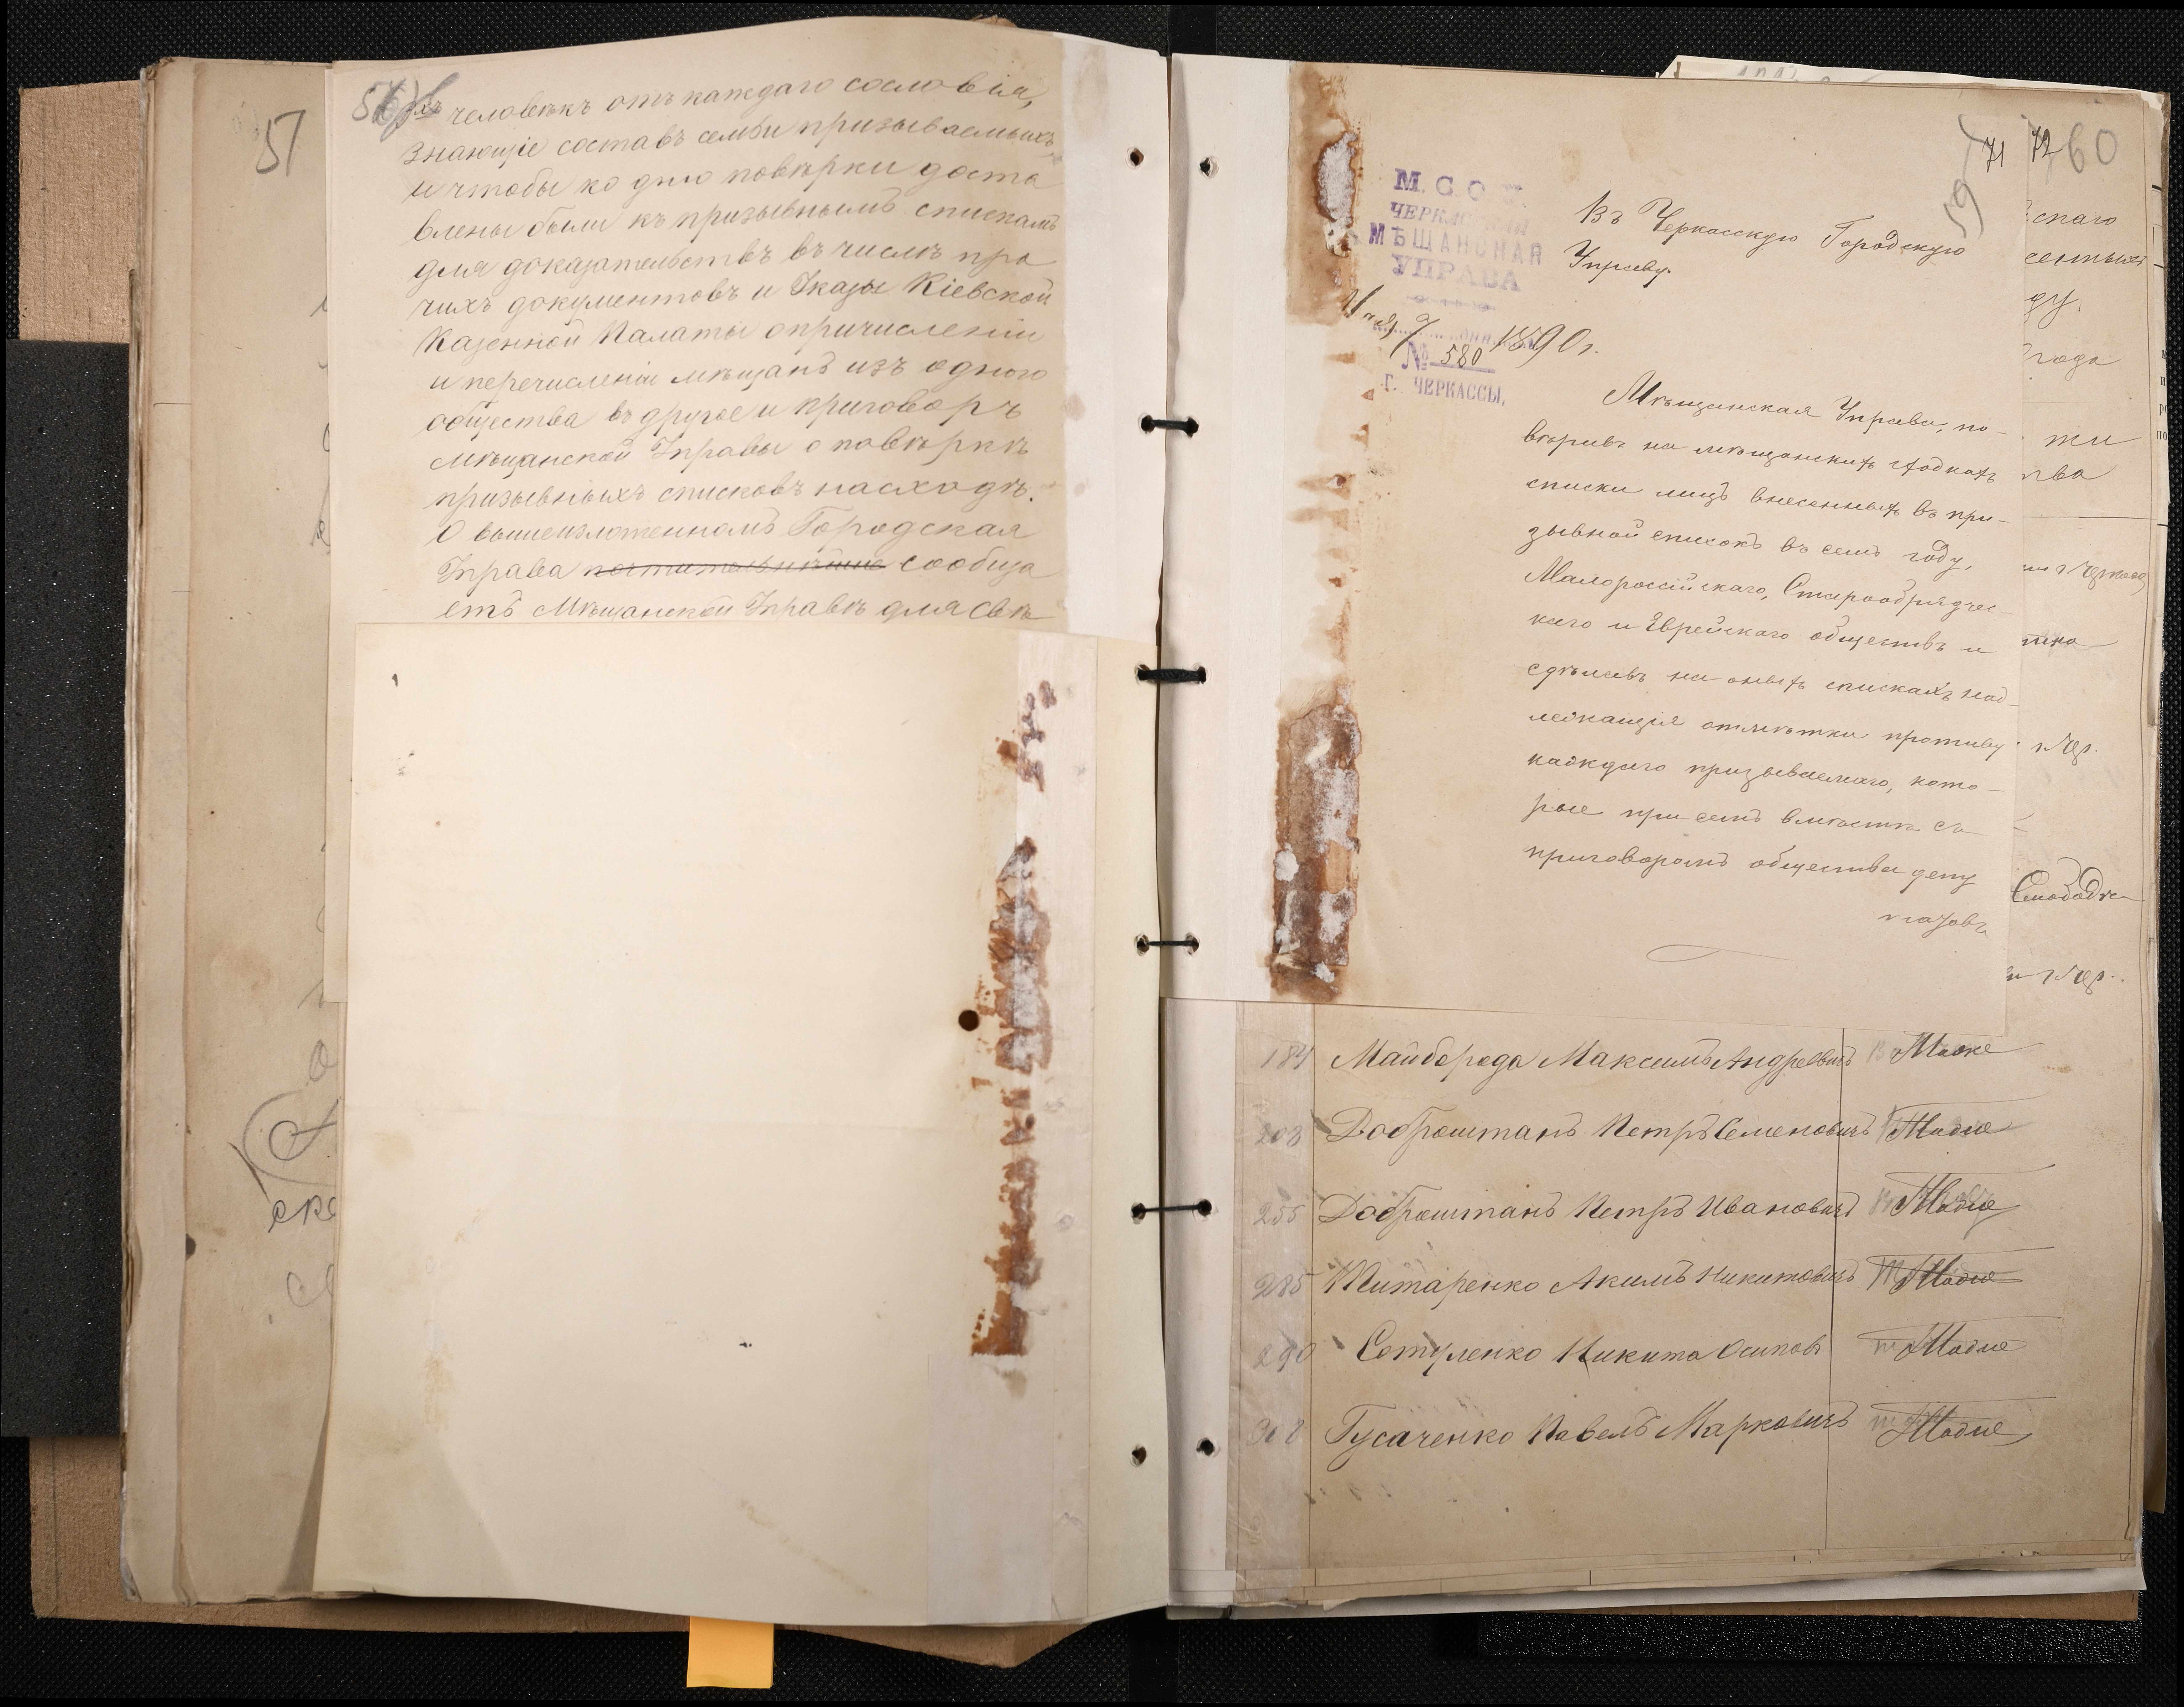 57
человѣкъ отъ каждаго сословія,
знающіе составъ семьи призываемыхъ,
и чтобы ко дню повѣрки доста
влены были къ призывнымъ спискамъ
для доказательствъ въ числѣ про
чихъ документовъ и Указы Кіевской
Казенной Палаты о причисленіи
и перечисленіи мѣщанъ изъ одного
общества въ другое и приговоръ
Мѣщанской Управы о повѣркѣ
призывныхъ списковъ
О вышеизложенномъ Городская
Управа почтительнѣйше сообща
етъ Мѣщанской Управѣ для свѣ
71
72
60
59
М. С. О.
ЧЕРКАССКАЯ
МѢЩАНСКАЯ
УПРАВА
Мая 9 1890 г.
№ 580
Г. ЧЕРКАССЫ.
Въ Черкасскую Городскую
Управу.
Мѣщанская Управа, по-
вѣривъ на мѣщанскихъ сходкахъ
списки лицъ внесенныхъ въ при-
зывной списокъ въ семъ году,
Малороссійскаго, Старообрядчес-
каго и Еврейскаго обществъ и
сдѣлавъ на оныхъ спискахъ над-
лежащія отмѣтки противу
каждаго призываемаго, кото-
рые при семъ вмѣстѣ съ
приговоромъ общества депу
татовъ
скаго
ду.
года
ти
тва
г. Чер.
Слободѣ
г. Чер.
184 Майборода Максимъ Андреевичъ Тоже
208 Доброштанъ Петръ Семеновичъ Тоже
255 Доброштанъ Петръ Ивановичъ Тоже
285 Титаренко Акимъ Никитовичъ Тоже
290 Сотуленко Никита Осиповъ Тоже
308 Гусаченко Павелъ Марковичъ Тоже